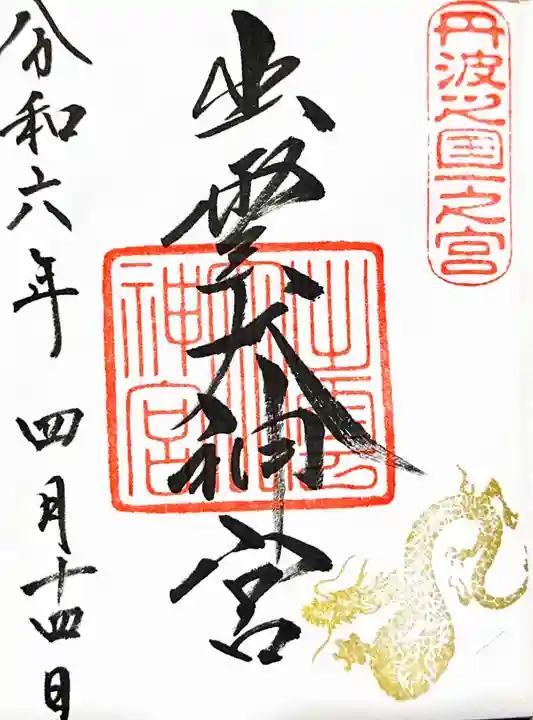 丹波之国一之宮
出雲大神宮
出雲大神宮
令和六年 四月十四日